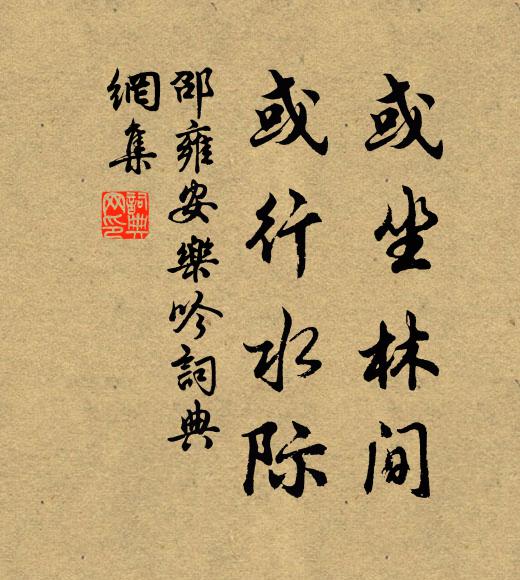 或坐林间
或行水际
邵雍安樂吟詞典
網集
詞典
网印